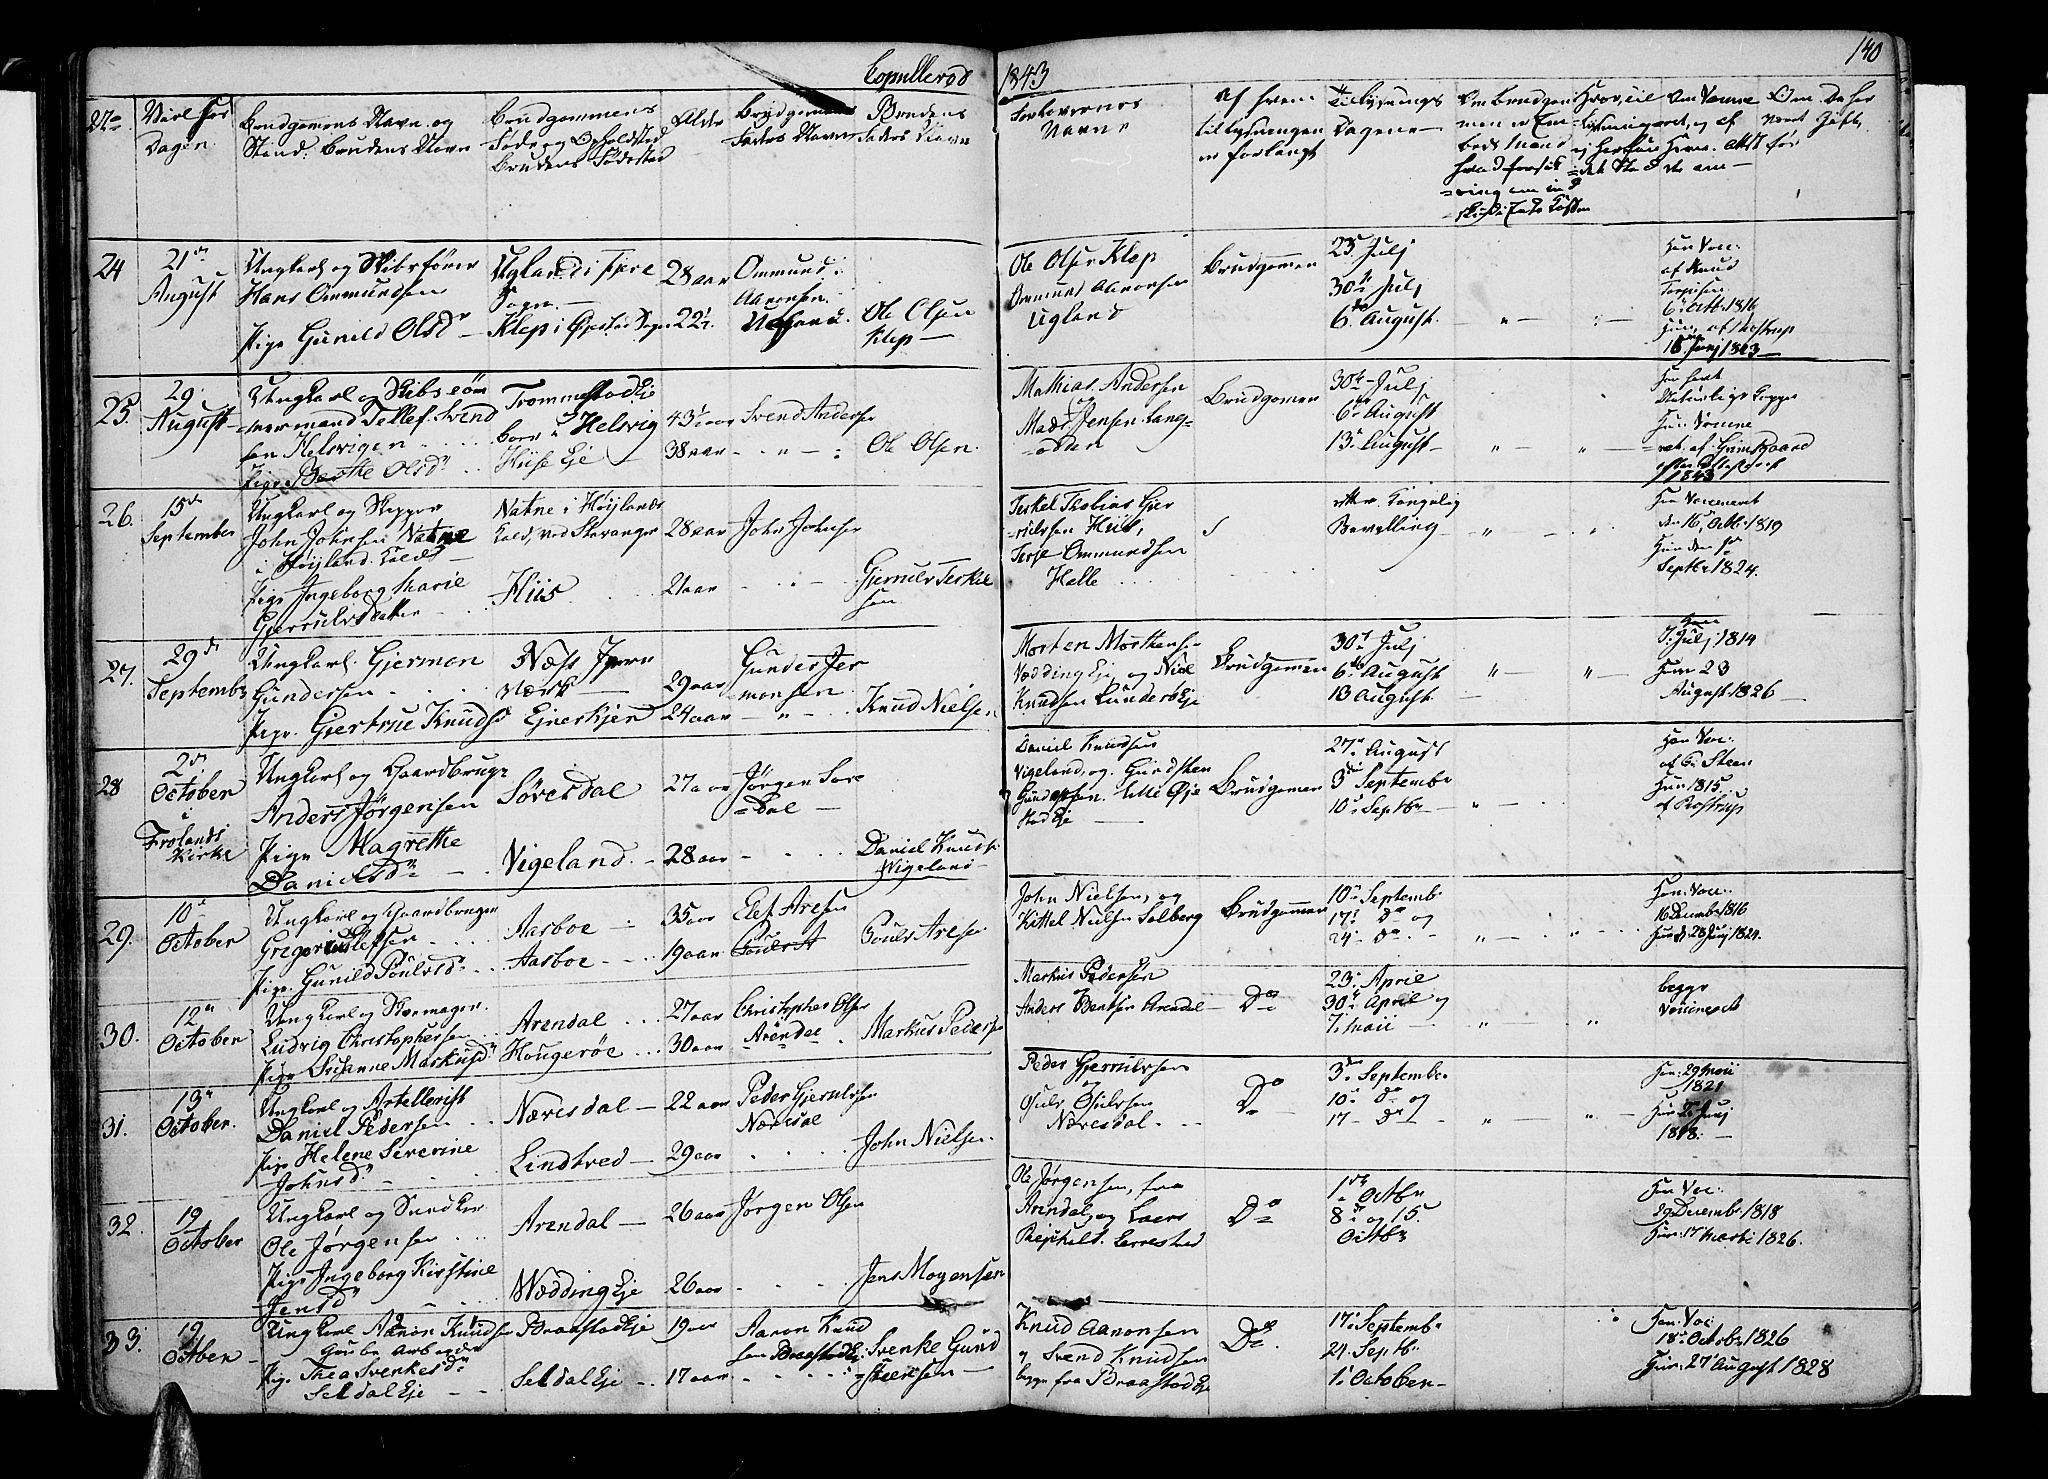 140
Copullerede 1843
No
Viel sed
Dagen
Brudgomens Navn og
Stand: Brudens Navn
Brudgommens
Føde og Opholdsted
Brudens Fødested
Alder
Brudgomens
Faders Navn
Brudens
Faders Navn
Forlovernes
Navne
Af hvem
tillysningen
er forlangt
Tillysnings
Dagene
24
21de
August
Ungkarl og Skibsfører
Hans Ommundsen
Pige Gunild Olsdr
Ugland i Fjære
Sogn
Klep i Øjestad Sogn
28 aar
22½
Ommund
Aaronsen
Ugland
Ole Olsen
Klep
Ole Olsen Klep
Ommund Aaronsen
Ugland
Brudgomen
23 Julj
30te Julj
6te August
Han Vac:
af Knud
Terjesen
6 Octb. 1816
Hun af Rostrup
1823
25.
29
August
Ungkarl og Skibstøm
mermand Tellef Svend
sen Helvigen
Pige Berthe Olsdr
Trommestad Eje
boer i Helsvig
Hiise Eje
43½ aar
38 aar
Svend Andersen
Ole Olsen
Mathias Andersen
og
Mads Jensen Lang=
=odden
Brudgomen
30te Julj
6te August
13de August
Han havt
Naturlige Kopper
Hun Vaccine
ret af Grimsgaard
1843
26.
15de
September
Ungkarl og Skipper
John Johnsen Natne
i Høiland Kald
Pige Ingeborg Marie
Gjerulvsdatter
Natne i Høilands
Kald, ved Stavanger
Hiis
28 aar
21 aar
John Johnsen
Gjerulv Terkel
sen
Terkel Thobias Gjer
rulvsen Hiis,
Terje Ommundsen
Helle
efter Kongelig
Bevilling
Han Vaccineret
den 16 Octb. 1819
Hun den 1ste
Septbr 1824.
27.
29de
Septembr
Ungkarl Gjermon
Gundersen
Pige Gjertrue Knudsd
Næss Jern
Værk
Ejnerkjer
29 aar
24 aar
Gunder Jer
monsen
Knud Nielsen
Morten Morthens
Vædding Eje og Niel
Knudsen Lunderød Eje
Brudgomen
30te Julj
6te August
13 August
Han
7 Julj 1814
Hun 23
August 1826
28
2den
October
i
Frolands
Kirke
Ungkarl og Gaardbruger
Anders Jørgensen
Pige Magrethe
Danielsdr
Søresdal
Vigeland
27 aar
28 aar
Jørgen Søre
=dal
Daniel Knuds
Vigeland
Daniel Knudsen
Vigeland, og Gundsten
Gundersen Lille Øje
stad Eje
Brudgomen
27de August
3die Septembr
10de Septbr
Han Vac:
af C: Steen
Hun 1815
af Rostrup
29.
10de
October
Ungkarl og Gaardbruger
Gregorius Elefsen
Pige Gunild Poulsdr
Aasboe
Aasboe
35 aar
19 aar
Elef Aresen
Poulv A
Poulv Aresen
John Nielsen, og
Kittel Nielsen Solberg
Brudgommen
10de Septemb
17de Do og
24 Do
Han Vac:
16 Decembr 1816
Hun d. 28 Junj 1824.
30.
12te
October
Ungkarl og Skomager
Ludvig Christophersen
Pige Susanne Markusdr
Arendal
Hougerøe
27 aar
30 aar
Christopher Olsen
Arendal
Markus Peders
Markus Pedersen
Anders Bentsen Arendal
Do
23 April
30te April og
7. Maii
begge
Vaccineret
31.
13de
October.
Ungkarl og Artellerist
Daniel Pedersen
Pige Helene Severine
Johnsdr
Næresdal
Lindtved
22 aar
29 aar
Peder Gjerulvsen
Næresdal
John Nielsen
Peder Gjerrulvsen
og
Osulv Osulvsen
Næresdal
Do
3die Septembr
10de do og
17 do
Han: 29 Maii
1821
Hun 2. Junj
1818.
32.
19
October
Ungkarl og Snedker
Ole Jørgensen
Pige Ingeborg Kirstine
Jensdr
Arendal
Wædding Eje
26 aar
26 aar
Jørgen Olsen
Jens Mogensen
Ole Jørgensen, fra
Arendal, og Laers
Do
1ste Octbr
8de og 15
Octbr
Han Vac:
29 Decembr. 1818
Hun 17 Marti 1826.
33.
19
Octben
Ungkarl Aaron Knudsen
Grube Arbeider
Pige Thea Svenkesdr
Seldal Eje
Braastad Eje
Seldal Eje
19 aar
17 aar
Aaron Knud
sen Braastad Eje
Svenke Gund
=steensen
Knud Aaronsen
og Svend Knudsen
begge fra Braastad Eje
Do
17de Septembr
24. Septbr
1. October
Han Vac:
18 Octobr 1826
Hun 27 August 1828